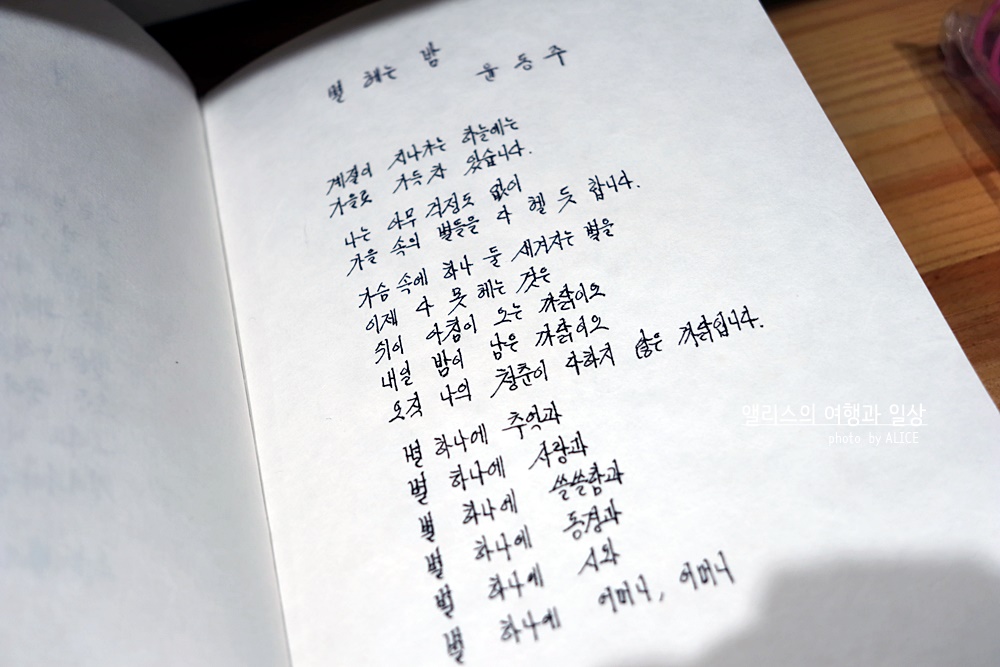 별 헤는 밤
윤동주
계절이 지나가는 하늘에는
가을로 가득 차 있습니다.
나는 아무 걱정도 없이
가을 속의 별들을 다 헬 듯 합니다.
가슴 속에 하나 둘 새겨지는 별을
이제 다 못 헤는 것은
쉬이 아침이 오는 까닭이오
내일 밤이 남은 까닭이오
오직 나의 청춘이 다하지 않은 까닭입니다.
별 하나에 추억과
별 하나에 사랑과
별 하나에 쓸쓸함과
별 하나에 동경과
별 하나에 시와
별 하나에 어머니, 어머니
앨리스의 여행과 일상
photo by ALICE